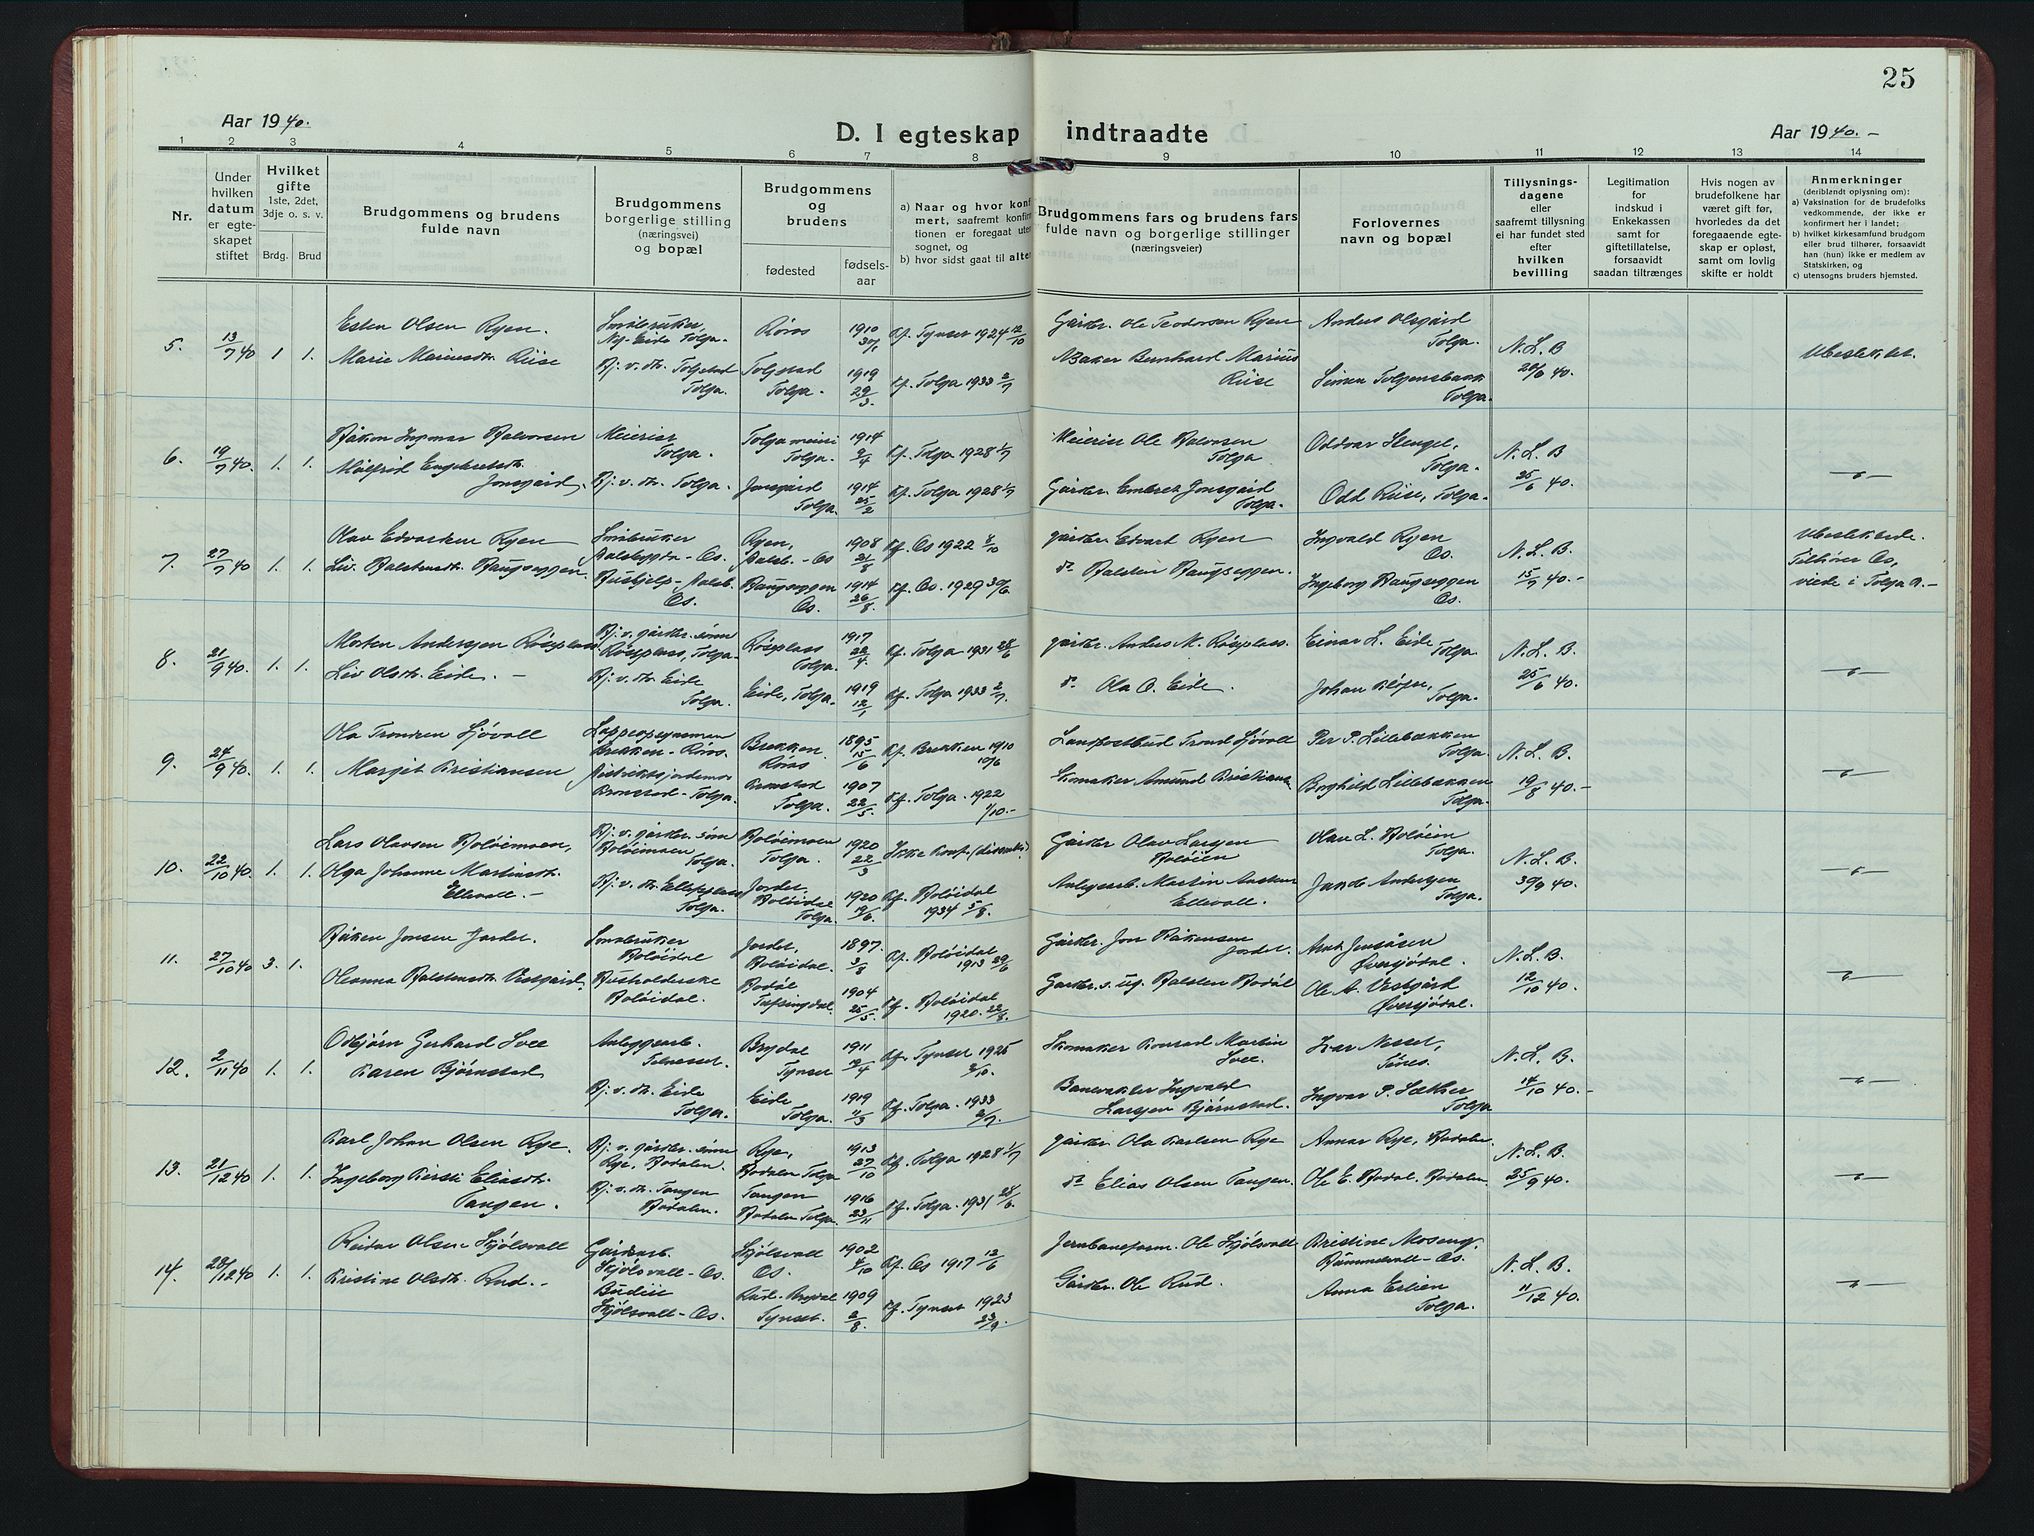 25
Aar 1940.
D. I egteskap indtraadte
Aar 1940.-
1 2 3 4 5 6 7 8 9 10 11 12 13 14
Nr.
Under hvilken datum er egteskapet stiftet
Hvilket gifte 1ste, 2det, 3dje o. s. v.
Brdg. Brud
Brudgommens og brudens fulde navn
Brudgommens borgerlige stilling (næringsvei) og bopæl
Brudgommens og brudens
fødested
fødsels-aar
a) Naar og hvor konf
mert, saafremt konfir
tionen er foregaat uten
sognet, og
b) hvor sidst gaat til alter
Brudgommens fars og brudens fars
fulde navn og borgerlige stillinger
(næringsveier)
Forlovernes
navn og bopæl
Tillysnings-
dagene
eller
saafremt tillysning
ei har fundet sted
efter
hvilken
bevilling
Legitimation
for
indskud i
Enkekassen
samt for
giftetillatelse,
forsaavidt
saadan tiltrænges
Hvis nogen av
brudefolkene har
været gift før,
hvorledes da det
foregaaende egte-
skap er opløst,
samt om lovlig
skifte er holdt
Anmerkninger
(deriblandt oplysning om):
a) Vaksination for de brudefolks
vedkommende, der ikke er
konfirmert her i landet;
b) hvilket kirkesamfund brudgom
eller brud tilhører, forsaavidt
han (hun) ikke er medlem av
Statskirken, og
c) utensogns bruders hjemsted.
5. 13/7 40 1 1.
Esten Olsen Ryen.
Småbruker, Ny-Eide Tolga.
Røros
1910 30/1
Kf. Tynset 1924 12/10
Gårdbr. Ole Teodorsen Ryen
Anders Olsgård Tolga.
N. L. B 20/6 40.
Ubeslektet.
Marie Mariusdtr. Riise
Hj. v. dtr. Tolgstad Tolga.
Tolgstad Tolga.
1919 29/3.
Kf. Tolga 1933 2/7
Baker Bernhard Marius Riise
Simen Tolgensbakk Tolga.
6. 19/7 40. 1. 1.
Håkon Ingmar Halvorsen
Meierist Tolga.
Tolga meieri Tolga.
1914 2/4
Kf. Tolga 1928 1/7
Meierist Ole Halvorsen Tolga
Oddvar Stengel, Tolga.
N. L. B 25/6 40.
Målfrid Engebretsdtr. Jonsgård.
Hj. v. dtr. Tolga.
Jonsgård Tolga.
1914 25/2
Kf. Tolga 1928 1/7
Gårdbr. Embret Jonsgård Tolga.
Odd Riise, Tolga.
7. 27/7 40 1. 1.
Olav Edvardsen Ryen
Småbruker Dalsbygda - Os.
Ryen, Dalsb. - Os
1908 21/8
Kf. Os 1922 8/10
gårdbr. Edvard Ryen
Ingvald Ryen Os.
N. L. B. 15/7 40.-
Ubeslektede. Tilhører Os, viede i Tolga K.-
Liv. Halstensdtr. Haugseggen.
Hushjelp - Dalsb. Os.
Haugseggen Os.
1914 26/8.
Kf. Os. 1929 30/6.
do Halsten Haugseggen.
Ingeborg Haugseggen Os.
8. 21/9 40. 1. 1.
Morten Andersen Røsplass
Hj. v. gårdbr. sønn Røsplass, Tolga.
Røsplass Tolga.
1917 22/4.
Kf. Tolga 1931 28/6
gårdbr. Anders M. Røsplass.
Einar L. Eide Tolga.
N. L. B. 25/6 40.
Liv Olsdtr. Eide. -
Hj. v. dtr. Eide Tolga.
Eide, Tolga.
1919 12/1
Kf. Tolga 1933 2/7.
do Ola O. Eide.
Johan Kløften, Tolga.
9. 24/9 40. 1. 1.
Ola Trondsen Sjøvoll
Lappeopsynsmann Brekken - Røros.
Brekken. Røros
1895 15/6
Kf. Brekken 1910 10/6
Landpostbud Trond Sjøvoll
Per P. Lillebakken Tolga.
N. L. B. 19/8 40.-
Margit Kristiansen
Distriktsjordemor Kronstad - Tolga.
Kronstad Tolga.
1907 22/5.
Kf. Tolga. 1922 1/10.-
Skomaker Amund Kristiansen
Borghild Lillebakken Tolga.
10. 22/10 40. 1. 1.
Lars Olavsen Holøimoen,
Hj. v. gårdbr. sønn Holøimoen Tolga.
Holøimoen Tolga.
1920 22/3
Ikke konf. (dissenter).
Gårdbr Olav Larsen Holøien
Olav L. Holøien Tolga.
N. L. B. 30/9 40.
Olga Johanne Martinsdtr. Ellevoll. -
Hj. v. dtr. Ellesplass Tolga.
Jordet. Holøidal Tolga.
1920 19/6.
Kf. Holøidal 1934 5/8.
Anleggsarb. Martin Ellevoll.
Andersen Tolga.
11. 27/10 40 3. 1.
Håken Jonsen Jordet.
Småbruker Holøidal
Jordet, Holøidal.
1897. 3/8
Kf. Holøidal 1913 29/6
Gårdbr. Jon Håkensen Jordet.
Arnt Jonsåsen Øversjødal.
N. L. B. 12/10 40.
Oleanna Halstensdtr. Vestgård.
Husholderske Holøidal.
Hodøl Tufsingdal.
1904 25/5.
Kf. Holøidal 1920. 22/8.
Gårdbr. s. ug. Halsten Hodøl
Ole A. Vestgård Øversjødal.
12. 2/11 40 1. 1.
Odbjørn Gerhard Svee
Anleggsarb. Telneset.
Brydal Tynset
1911 19/4
Kf. Tynset 1925 2/10.
Skomaker Konrad Martin Svee.
Ivar Nesset, Tønset.
N. L. B. 14/10 40.-
Karen Bjørnstad
Hj. v. dtr. Eide Tolga.
Eide Tolga.
1919 11/3
Kf. Tolga. 1933 2/7.
Banevokter Ingvald Larsen Bjørnstad.
Ingvar P. Sæther Tolga
13. 21/12 40 1. 1.
Karl Johan Olsen Rye.
Hj. v. gårdbr. sønn Rye, Hodalen.
Rye, Hodalen Tolga
1913 27/10
Kf. Tolga 1928 1/7
gårdbr. Ola Karlsen Rye
Annar Rye, Hodalen.
N. L. B. 25/9 40.
Ingeborg Kirsti Eliasdtr. Tangen.
Hj. v. dtr. Tangen Hodalen.
Tangen Hodalen Tolga.
1916 23/11
Kf. Tolga. 1931 28/6.
do Elias Olsen Tangen.
Ole E. Hodal. Hodalen.
14. 28/12 40 1. 1.
Reidar Olsen Skjølsvoll
Gårdsarb. Skjølsvoll - Os.
Skjølsvoll Os.
1902 4/10
Kf. Os 1917 13/6
Jernbaneform. Ole Skjølsvoll
Kristine Moseng, Hummelvoll - Os.
N. L. B. 11/12 40.
Kristine Olsdtr. Rud. -
Budeie Skjølsvoll - Os.
Rud. Brydal Tynset.
1909 2/8.
Kf. Tynset 1923 23/9.
Gårdbr. Ole Rud.
Anna Erlien Tolga.